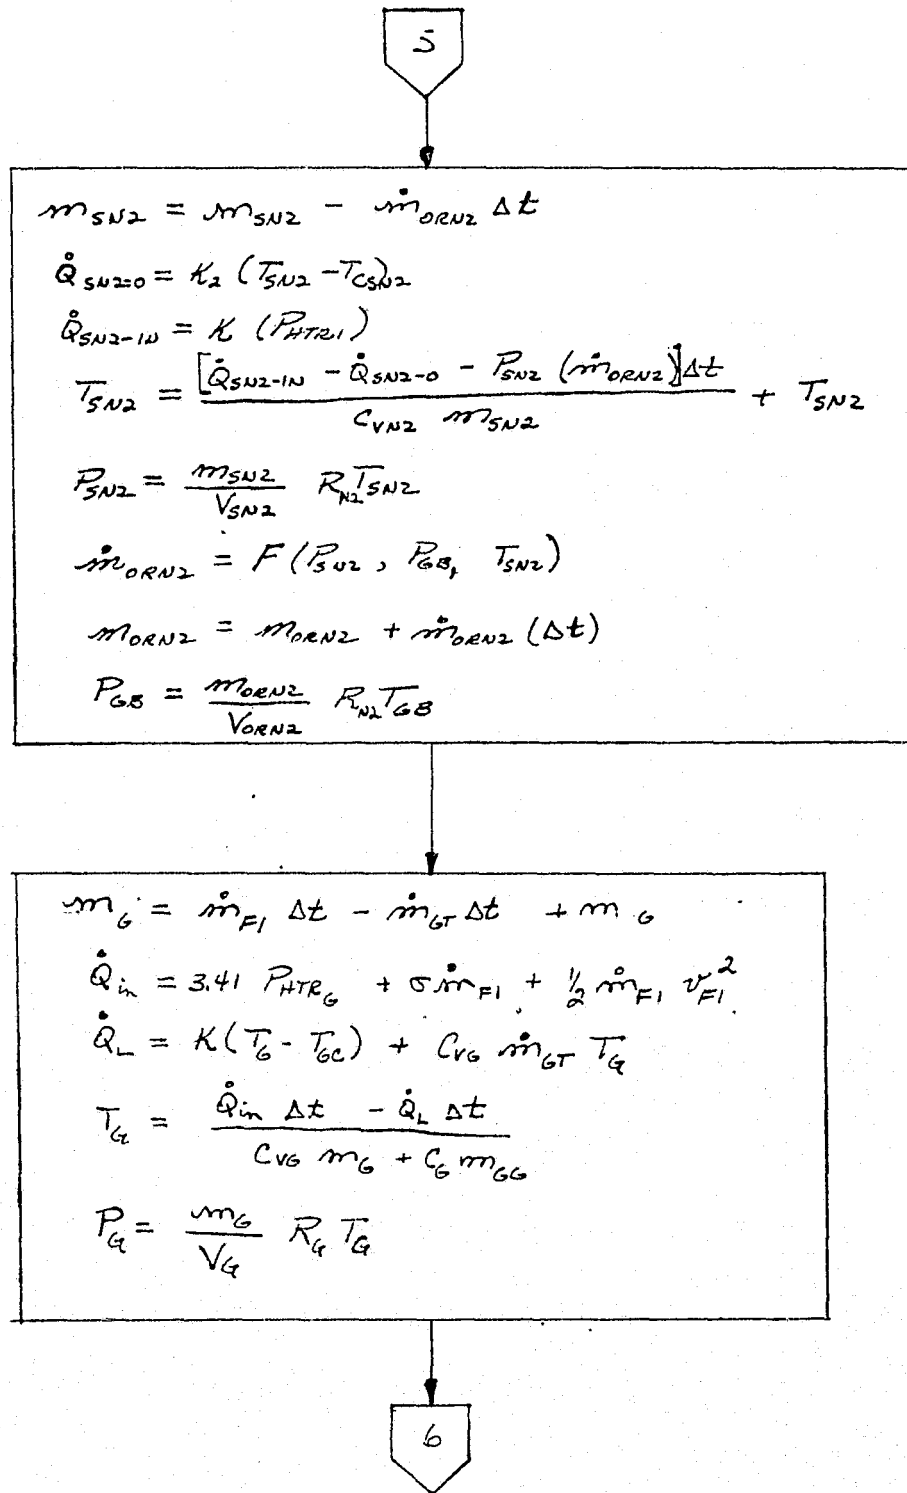 5
m_SN2 = m_SN2 - ṁ_ORN2 Δt
Q̇_SN2=0 = K_2 (T_SN2 - T_CS)_N2
Q̇_SN2-IN = K (P_HTR1)
T_SN2 = [Q̇_SN2-IN - Q̇_SN2-0 - P_SN2 (ṁ_ORN2)]Δt / C_VN2 m_SN2 + T_SN2
P_SN2 = m_SN2 / V_SN2 R_N2 T_SN2
ṁ_ORN2 = F (P_SN2, P_GB, T_SN2)
m_ORN2 = m_ORN2 + ṁ_ORN2 (Δt)
P_GB = m_ORN2 / V_ORN2 R_N2 T_GB
m_G = ṁ_F1 Δt - ṁ_GT Δt + m_G
Q̇_in = 3.41 P_HTR_G + σ ṁ_F1 + 1/2 ṁ_F1 v_F1^2
Q̇_L = K(T_G - T_GC) + C_VG ṁ_GT T_G
T_G = Q̇_in Δt - Q̇_L Δt / C_VG m_G + C_G m_GG
P_G = m_G / V_G R_G T_G
6